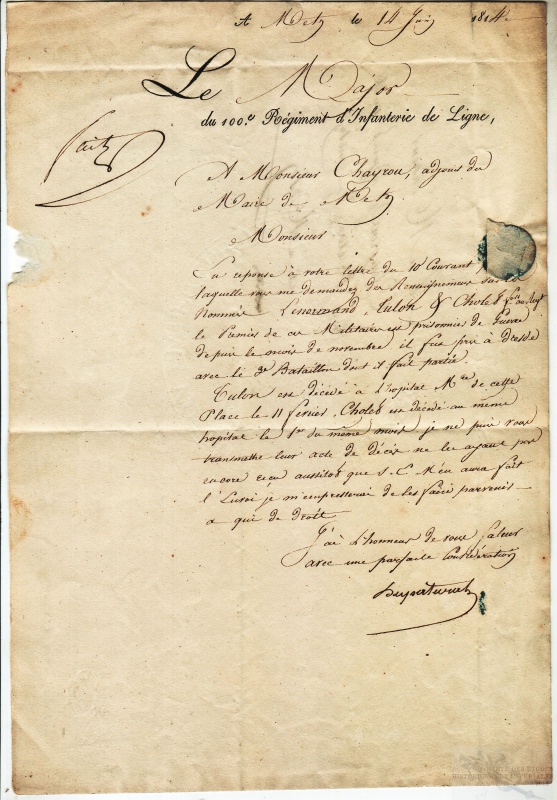 A Metz le 14 Juin 1814
Le Major
du 100.e Régiment d'Infanterie de Ligne,
fait
A Monsieur Chayrou, adjoint du
Maire de Metz.
Monsieur
En reponse à votre lettre du 10 Courant, par
laquelle vous me demandez des Renseignemens sur les
Nommés Lenormand, Tulon & Cholet
le Premier de ces Militaires est prisonnier de Guerre
depuis le mois de novembre il fut pris à dresde
avec le 3e Bataillon dont il fait partie.
Tulon est décédé à L'hopital Mre de cette
Place le 11 fevrier, Cholet est décédé au même
hopital le 1er du même mois, je ne puis vous
transmettre leur acte de décès ne les ayant pas
encore reçu aussitot que S. C. M'en aura fait
l'Envoi je m'empresserai de les faire parvenir
a qui de droit
J'ai L'honneur de vous Saluer
avec une parfaite Considération